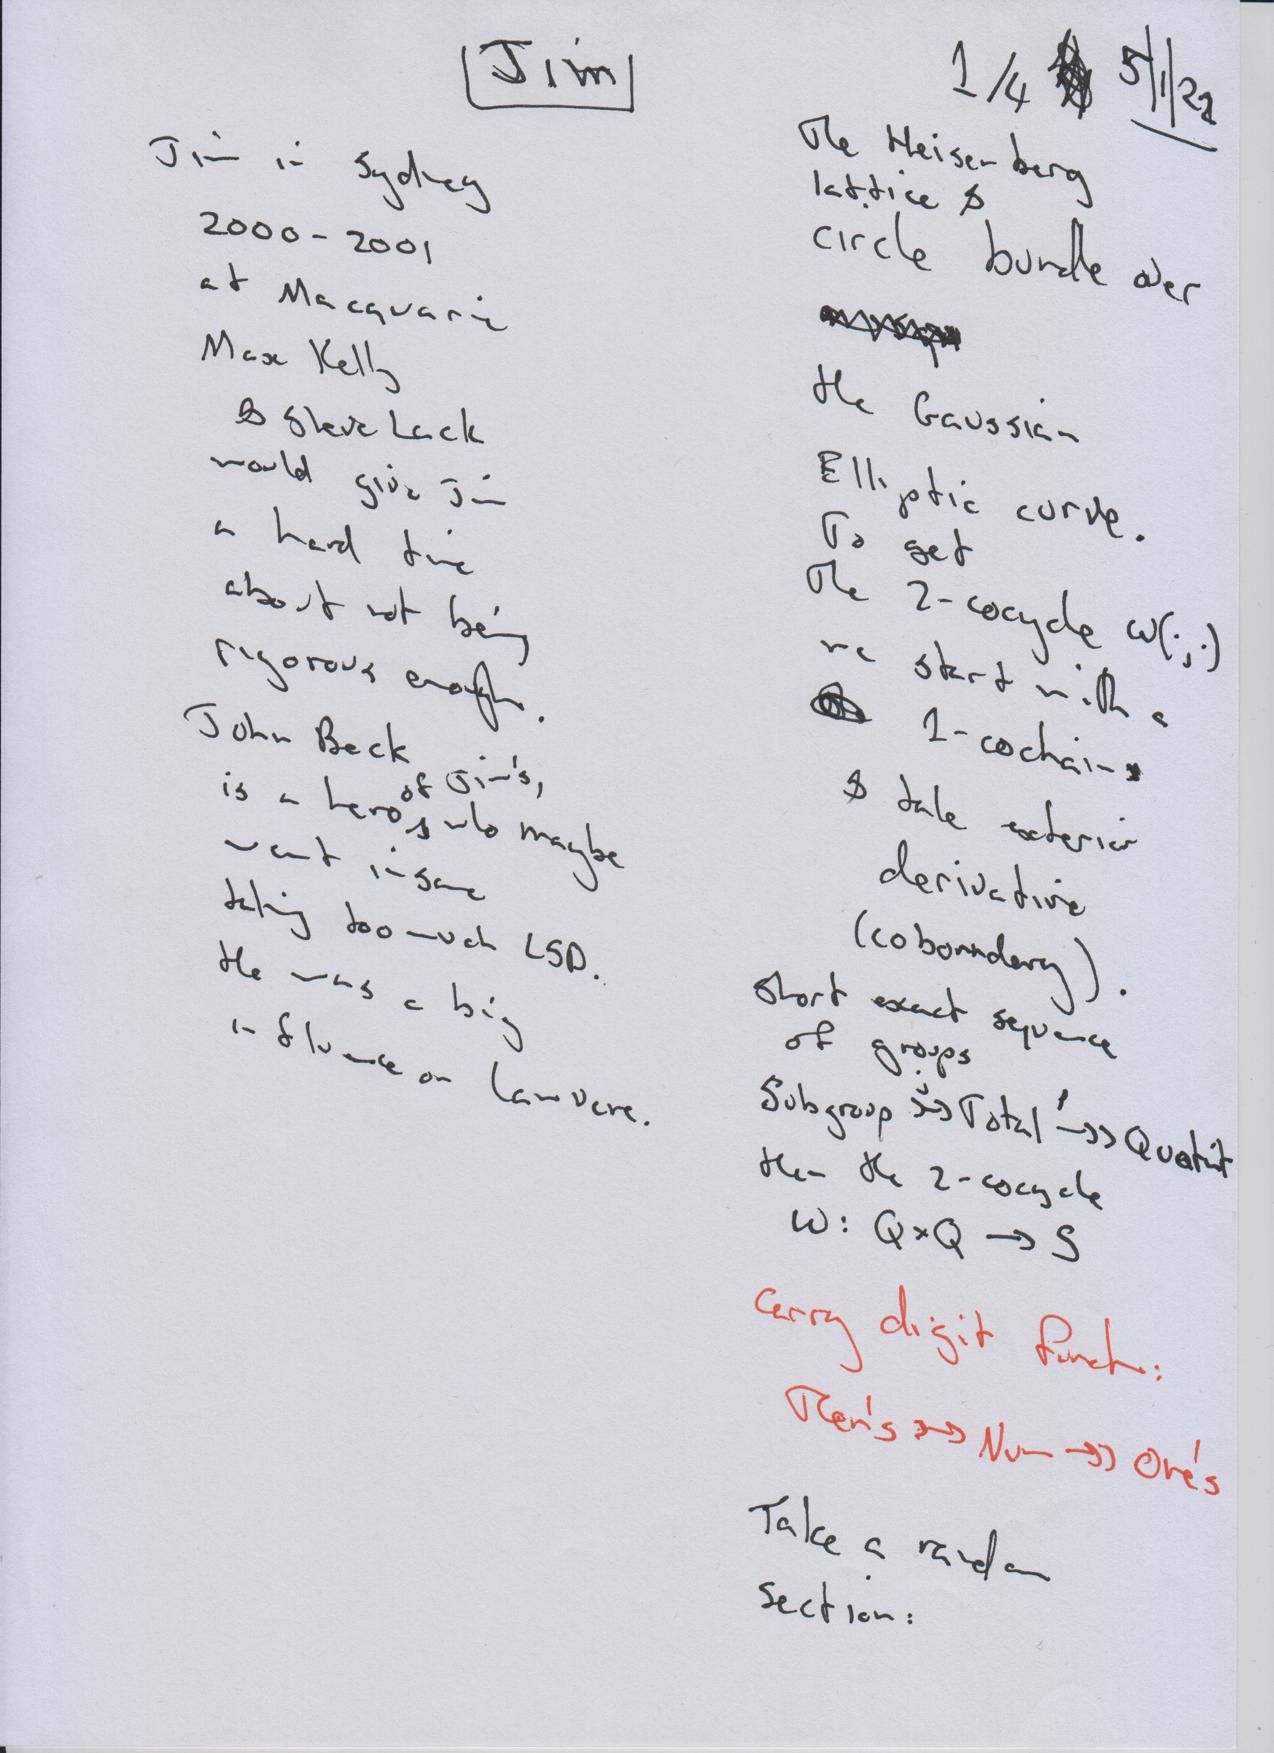 Jim
1/4 5/1/22
Jim in Sydney
2000-2001
at Macquarie
Max Kelly
& Steve Lack
would give Jim
a hard time
about not being
rigorous enough.
John Beck
is a hero of Jim's,
& who maybe
went insane
taking too much LSD.
He was a big
influence on Lawvere.
The Heisenberg
lattice &
circle bundle over
the Gaussian
Elliptic curve.
To get
the 2-cocycle ω(·,·)
we start with a
1-cochain
& take exterior
derivative
(coboundary).
Short exact sequence
of groups
Subgroup ↣ Total ↠ Quotient
then the 2-cocycle
ω: Q×Q → S
Carry digit funct:
Ten's ↣ Num ↠ One's
Take a random
section: